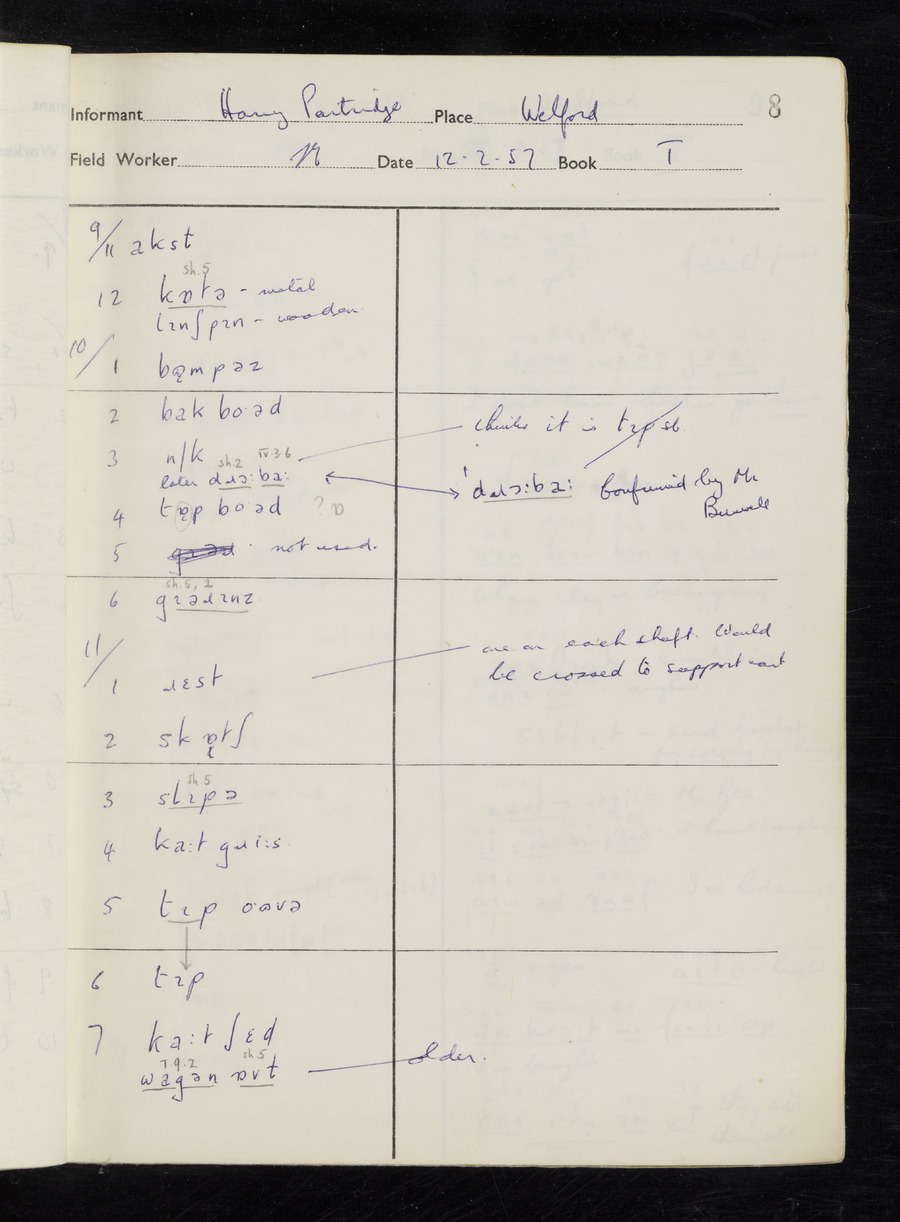 Informant Harry Partridge Place Welford 8
Field Worker Date 12.2.57 Book I
9/11 akst
sh.5
12 kɒtə - metal
lɪnʃpɪn - wooden
10/1 bʊ̜mpəz
2 bak bo·əd
thinks it is tɪpst.
3 n/k sh.2 IV.3.6
later dɹɔ:ba:
'dɹɔ:ba: Confirmed by Mr
4 tɒp boəd ? ɒ
5 not used.
sh.5, 2
6 gɪəɹɪnz
11/
are on each shaft. Would
be crossed to support cart
1 ɹɛst
2 skɒtʃ
sh 5
3 slɪpə
4 ka:t gɹi:s
5 tɪp oʊvə
6 tɪp
7 ka:t ʃɛd
I.9.2 sh 5
wagən ɒvt older.